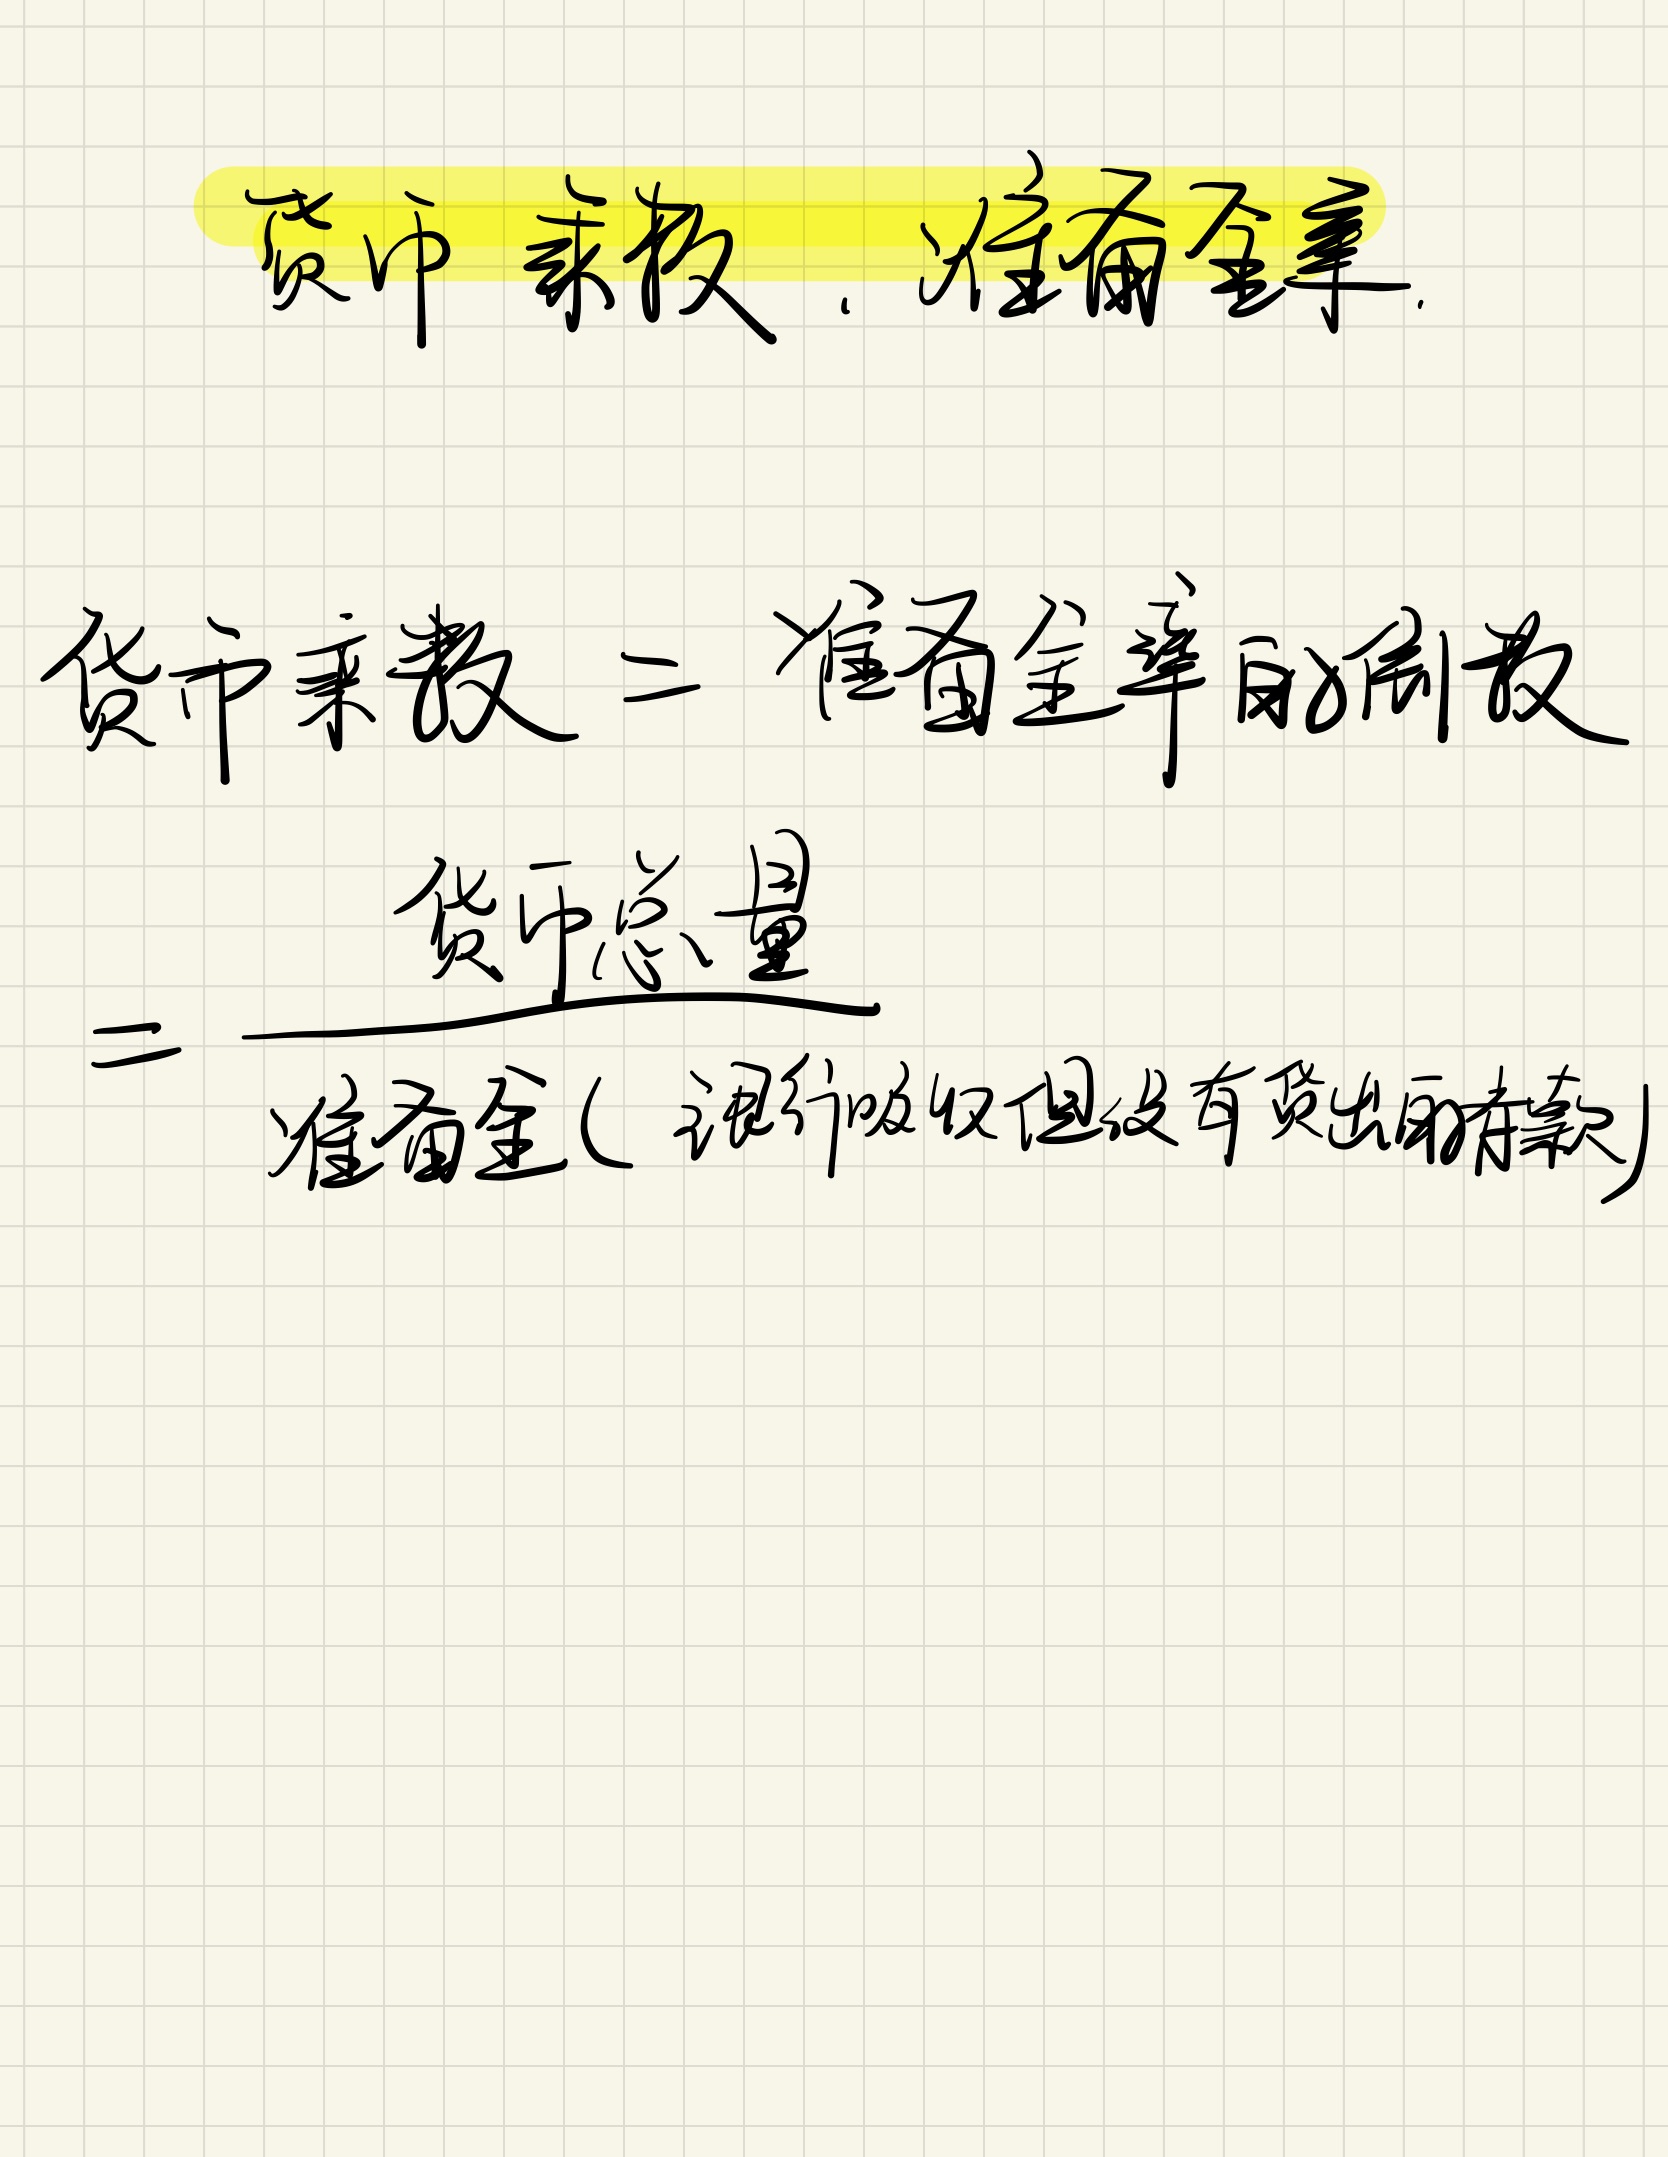 货币乘数、准备金率.
货币乘数 = 准备金率的倒数
= 货币总量
准备金(银行吸收但没有贷出的存款)